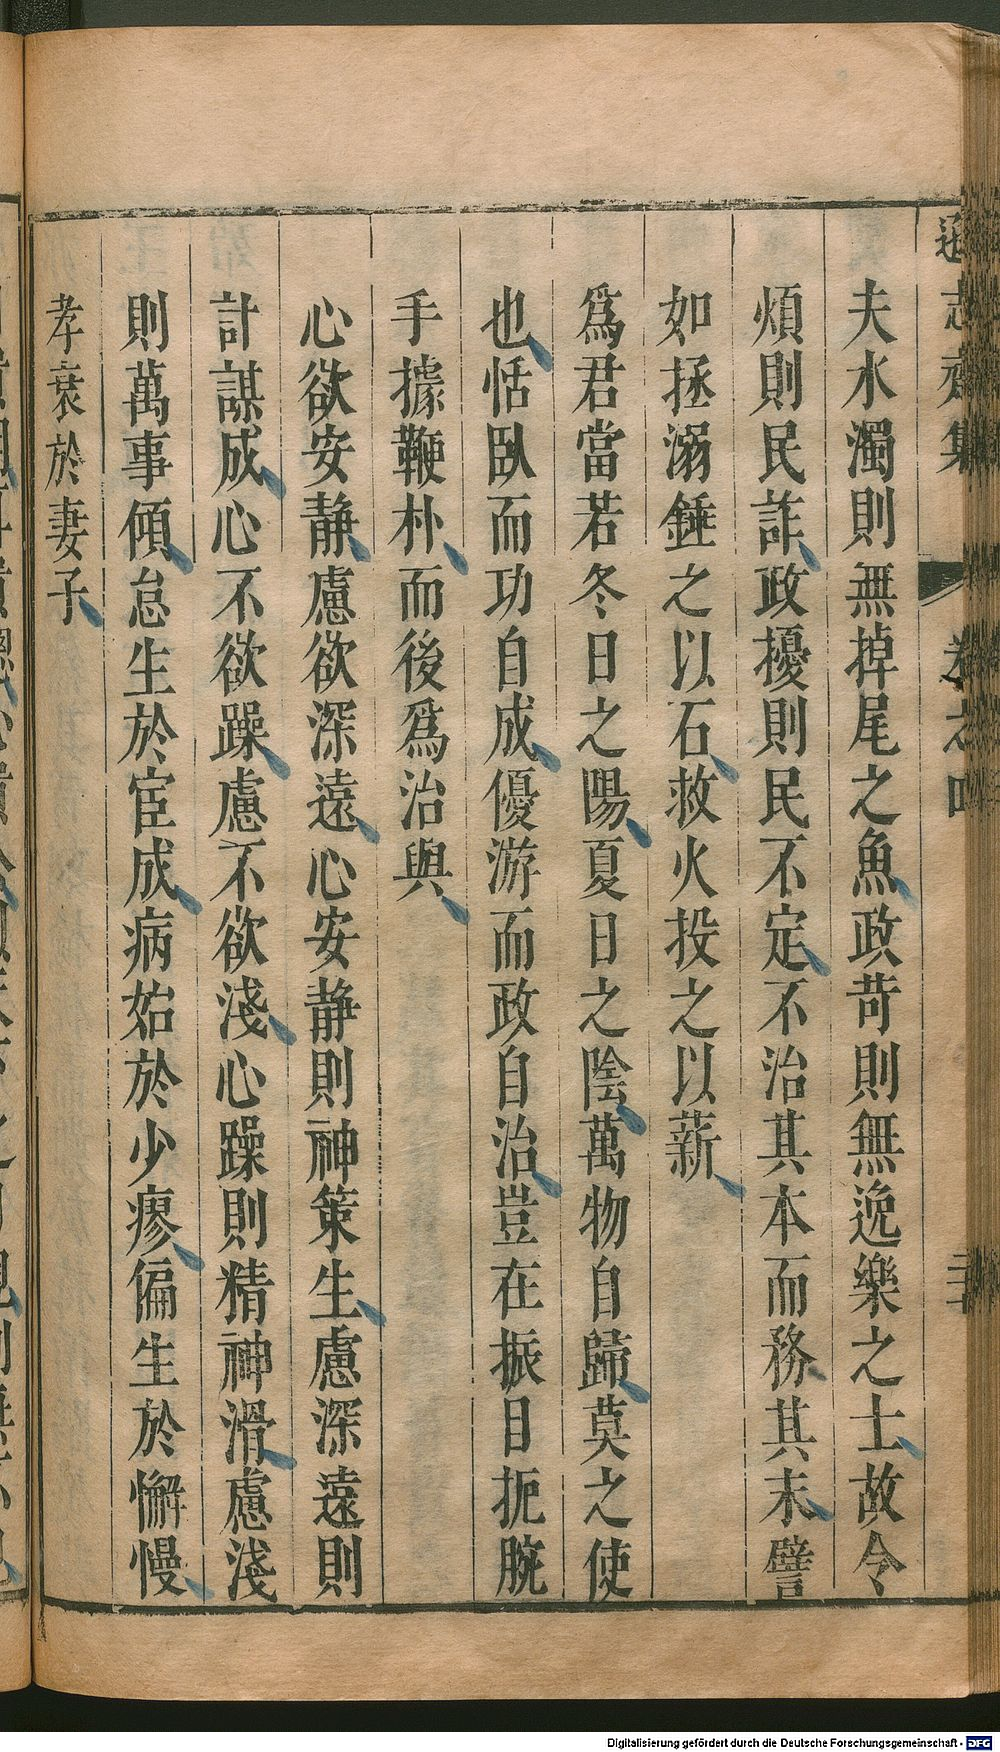 夫水濁則無掉尾之魚政苛則無逸樂之士故令
煩則民詐政擾則民不定不治其本而務其末譬
如拯溺錘之以石救火投之以薪
爲君當若冬日之陽夏日之陰萬物自歸莫之使
也恬臥而功自成優游而政自治豈在振目扼腕
手據鞭朴而後爲治與
心欲安静慮欲深遠心安静則神策生慮深遠則
計謀成心不欲躁慮不欲淺心躁則精神滑慮淺
則萬事傾怠生於宦成病始於少瘳偏生於懈慢
孝衰於妻子
Digitalisierung gefördert durch die Deutsche Forschungsgemeinschaft - DFG